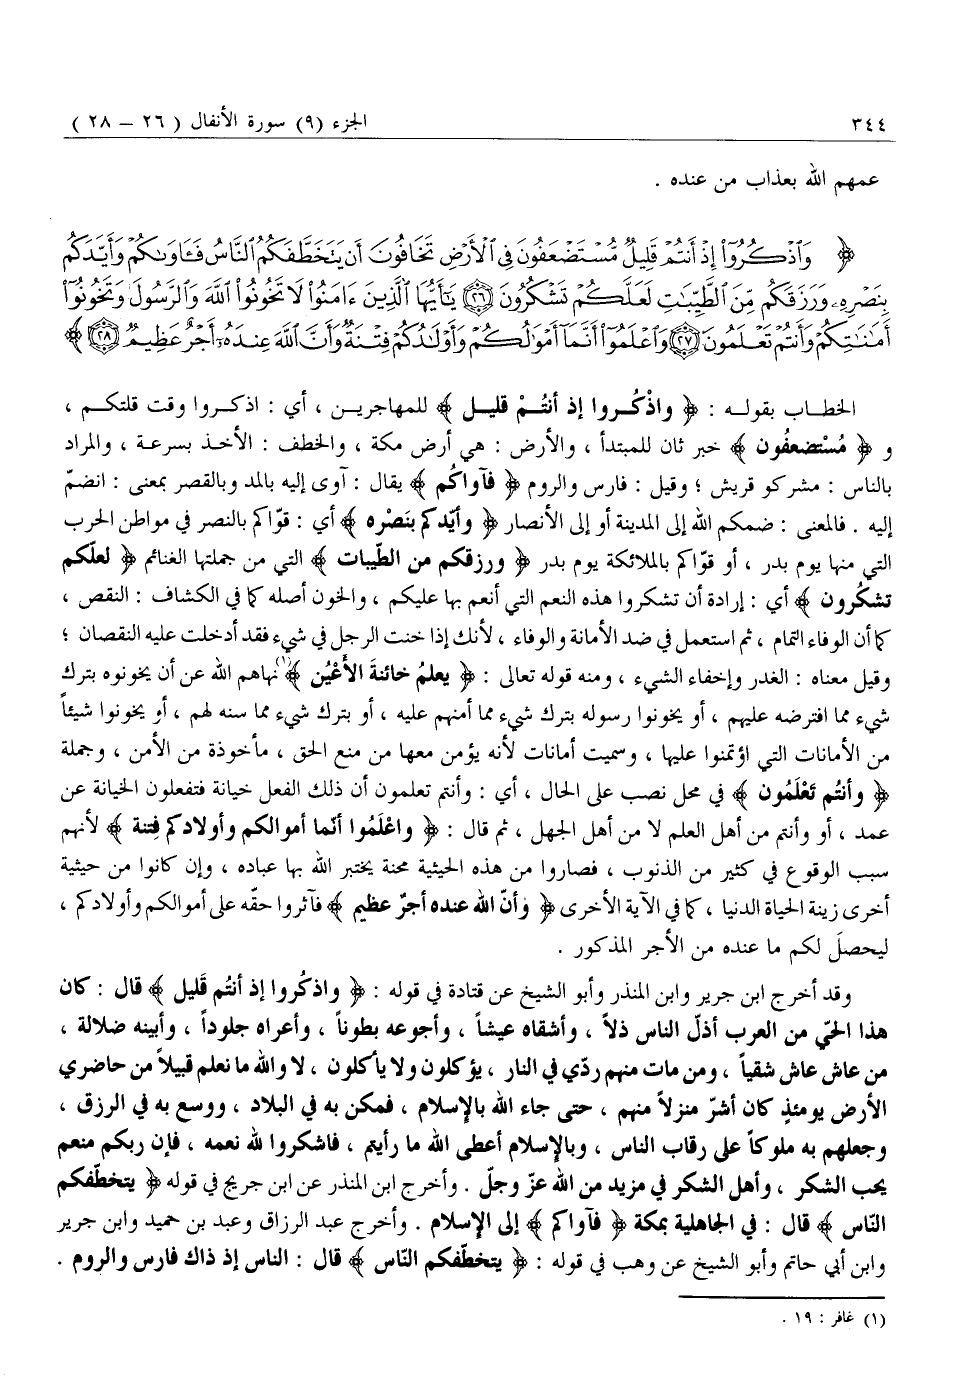 ٣٤٤ الجزء (٩) سورة الأنفال ( ٢٦ – ٢٨ )
عمهم الله بعذاب من عنده .
﴿ وَٱذْكُرُوٓا۟ إِذْ أَنتُمْ قَلِيلٌ مُّسْتَضْعَفُونَ فِى ٱلْأَرْضِ تَخَافُونَ أَن يَتَخَطَّفَكُمُ ٱلنَّاسُ فَـَٔاوَىٰكُمْ وَأَيَّدَكُم
بِنَصْرِهِۦ وَرَزَقَكُم مِّنَ ٱلطَّيِّبَٰتِ لَعَلَّكُمْ تَشْكُرُونَ ٢٦ يَٰٓأَيُّهَا ٱلَّذِينَ ءَامَنُوا۟ لَا تَخُونُوا۟ ٱللَّهَ وَٱلرَّسُولَ وَتَخُونُوٓا۟
أَمَٰنَٰتِكُمْ وَأَنتُمْ تَعْلَمُونَ ٢٧ وَٱعْلَمُوٓا۟ أَنَّمَآ أَمْوَٰلُكُمْ وَأَوْلَٰدُكُمْ فِتْنَةٌ وَأَنَّ ٱللَّهَ عِندَهُۥٓ أَجْرٌ عَظِيمٌ ٢٨ ﴾
الخطاب بقوله : ﴿ واذْكُروا إذ أنتُمْ قليل ﴾ للمهاجرين ، أي : اذكروا وقت قلتكم ،
و ﴿ مُسْتضعفُون ﴾ خبر ثان للمبتدأ ، والأرض : هي أرض مكة ، والخطف : الأخذ بسرعة ، والمراد
بالناس : مشركو قريش ؛ وقيل : فارس والروم ﴿ فآواكُم ﴾ يقال : آوى إليه بالمد وبالقصر بمعنى : انضمّ
إليه . فالمعنى : ضمكم الله إلى المدينة أو إلى الأنصار ﴿ وأيّدكم بنَصْره ﴾ أي : قوّاكم بالنصر في مواطن الحرب
التي منها يوم بدر ، أو قوّاكم بالملائكة يوم بدر ﴿ ورزقكم من الطّيبات ﴾ التي من جملتها الغنائم ﴿ لعلّكم
تشكُرون ﴾ أي : إرادة أن تشكروا هذه النعم التي أنعم بها عليكم ، والخون أصله كما في الكشاف : النقص ،
كما أن الوفاء التمام ، ثم استعمل في ضد الأمانة والوفاء ، لأنك إذا خنت الرجل في شيء فقد أدخلت عليه النقصان ؛
وقيل معناه : الغدر وإخفاء الشيء ، ومنه قوله تعالى : ﴿ يعلمُ خائنةَ الأَعْيُن ﴾(١) نهاهم الله عن أن يخونوه بترك
شيء مما افترضه عليهم ، أو يخونوا رسوله بترك شيء مما أمنهم عليه ، أو بترك شيء مما سنه لهم ، أو يخونوا شيئاً
من الأمانات التي اؤتمنوا عليها ، وسميت أمانات لأنه يؤمن معها من منع الحق ، مأخوذة من الأمن ، وجملة
﴿ وأنتُم تَعْلَمُون ﴾ في محل نصب على الحال ، أي : وأنتم تعلمون أن ذلك الفعل خيانة فتفعلون الخيانة عن
عمد ، أو وأنتم من أهل العلم لا من أهل الجهل ، ثم قال : ﴿ واعْلَمُوا أنّما أموالكم وأولادكم فِتنة ﴾ لأنهم
سبب الوقوع في كثير من الذنوب ، فصاروا من هذه الحيثية محنة يختبر الله بها عباده ، وإن كانوا من حيثية
أخرى زينة الحياة الدنيا ، كما في الآية الأخرى ﴿ وَأنّ الله عنده أجرٌ عظيم ﴾ فآثروا حقّه على أموالكم وأولادكم ،
ليحصلَ لكم ما عنده من الأجر المذكور .
وقد أخرج ابن جرير وابن المنذر وأبو الشيخ عن قتادة في قوله : ﴿ واذكُروا إذ أنتُم قَليل ﴾ قال : كان
هذا الحيّ من العرب أذلّ الناس ذلاً ، وأشقاه عيشاً ، وأجوعه بطوناً ، وأعراه جلوداً ، وأبينه ضلالة ،
من عاش عاش شقياً ، ومن مات منهم ردّي في النار ، يؤكلون ولا يأكلون ، لا والله ما نعلم قبيلاً من حاضري
الأرض يومئذٍ كان أشرّ منزلاً منهم ، حتى جاء الله بالإسلام ، فمكن به في البلاد ، ووسع به في الرزق ،
وجعلهم به ملوكاً على رقاب الناس ، وبالإسلام أعطى الله ما رأيتم ، فاشكروا لله نعمه ، فإن ربكم منعم
يحب الشكر ، وأهل الشكر في مزيد من الله عزّ وجلّ . وأخرج ابن المنذر عن ابن جريج في قوله ﴿ يتخطّفكم
النّاس ﴾ قال : في الجاهلية بمكة ﴿ فآواكم ﴾ إلى الإسلام . وأخرج عبد الرزاق وعبد بن حميد وابن جرير
وابن أبي حاتم وأبو الشيخ عن وهب في قوله : ﴿ يتخطّفكم النّاس ﴾ قال : الناس إذ ذاك فارس والروم .
(١) غافر : ١٩ .